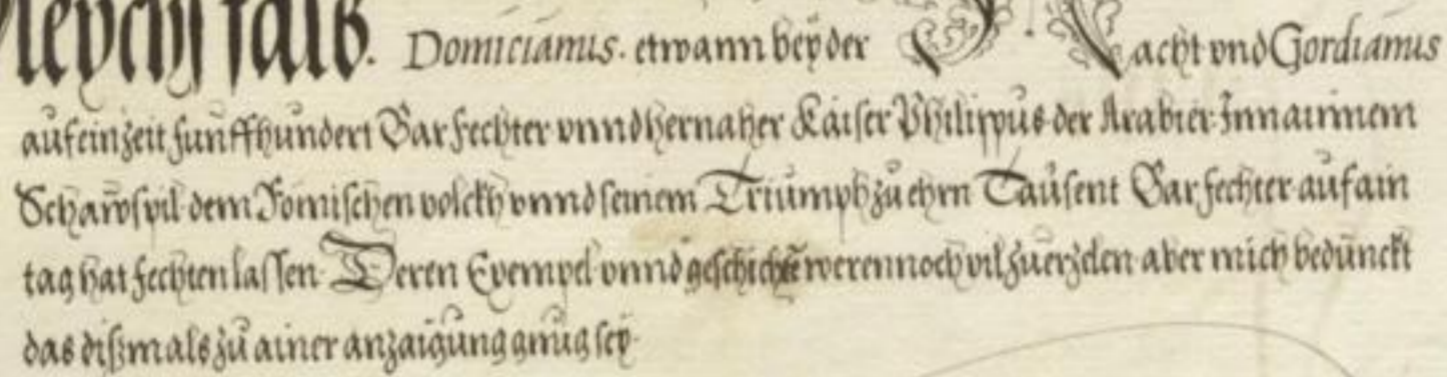 Gleychsfalß. Domicianus. etwann beÿ der Nacht vnd Gordianus
auf ein zeit funffhundert Par fechter vnnd hernaher Kaiser Philippus der Arabier Inn ainnem
Schawspil dem Römischen volckh vnnd seinem Triumph zu ehrn Tausent Par fechter auf ain
tag hat fechten lassen. Deren Exempel vnnd geschichte weren noch vil zu erzelen aber mich bedunckt
das dißmals zu ainer anzaigung gnug seÿ.